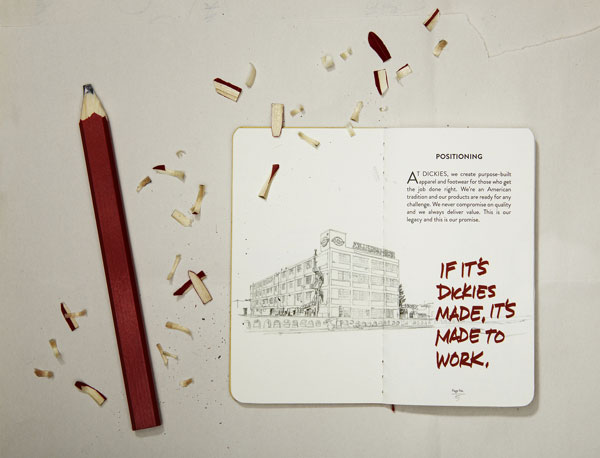 POSITIONING
AT DICKIES, we create purpose-built
apparel and footwear for those who get
the job done right. We're an American
tradition and our products are ready for any
challenge. We never compromise on quality
and we always deliver value. This is our
legacy and this is our promise.
IF IT'S
DICKIES
MADE, IT'S
MADE TO
WORK.
Page No.